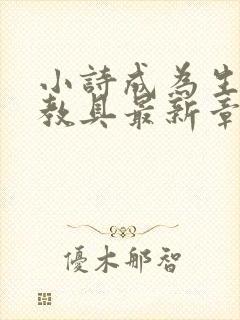 小詩成為生
教具最新章
優木郁智